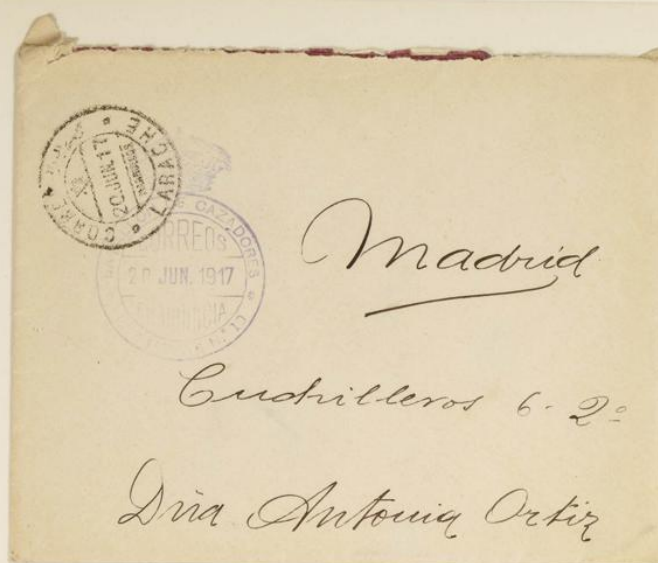 CORREOS
LARACHE
20.JUN.17
CAZADORES
CORREOS
20 JUN. 1917
FRANQUICIA
Nº 10
Madrid
Cuchilleros 6-2º
Dña Antonia Ortiz